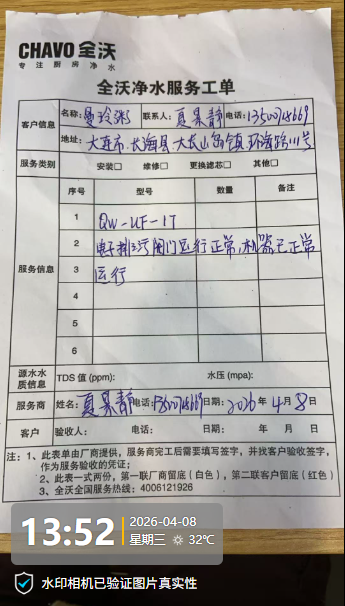 CHAVO 全沃
专注厨房净水
全沃净水服务工单
客户信息 名称: 曼玲粥 联系人: 夏景静 电话:
地址: 大连市.长海县大长山岛镇.环海路111号
服务类别 安装□ 维修□ 更换滤芯□ 其他□
服务信息 序号 型号 数量 备注
1 QW-UF-1T
2 电子排污阀门运行正常,机器已正常
3 运行
4
5
6
源水水质信息 TDS 值 (ppm): 水压 (mpa):
服务商 姓名: 夏景静 电话: 日期: 2026 年 4 月 8 日
客户 验收人: 电话: 日期: 年 月 日
注: 1、此表单由厂商提供，服务商完工后需要填写签字，并找客户验收签字，
作为服务验收的凭证;
2、此表一式两份，第一联厂商留底（白色），第二联客户留底（红色）
3、全沃全国服务热线: 4006121926
13:52
2026-04-08
星期三 32℃
水印相机已验证图片真实性